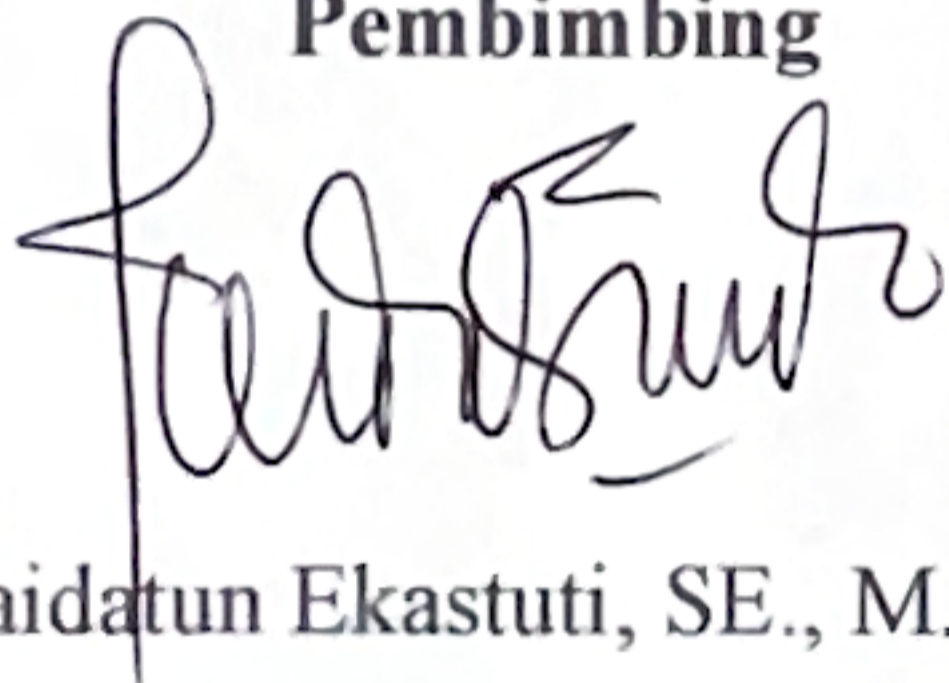 Pembimbing
aidatun Ekastuti, SE., M.